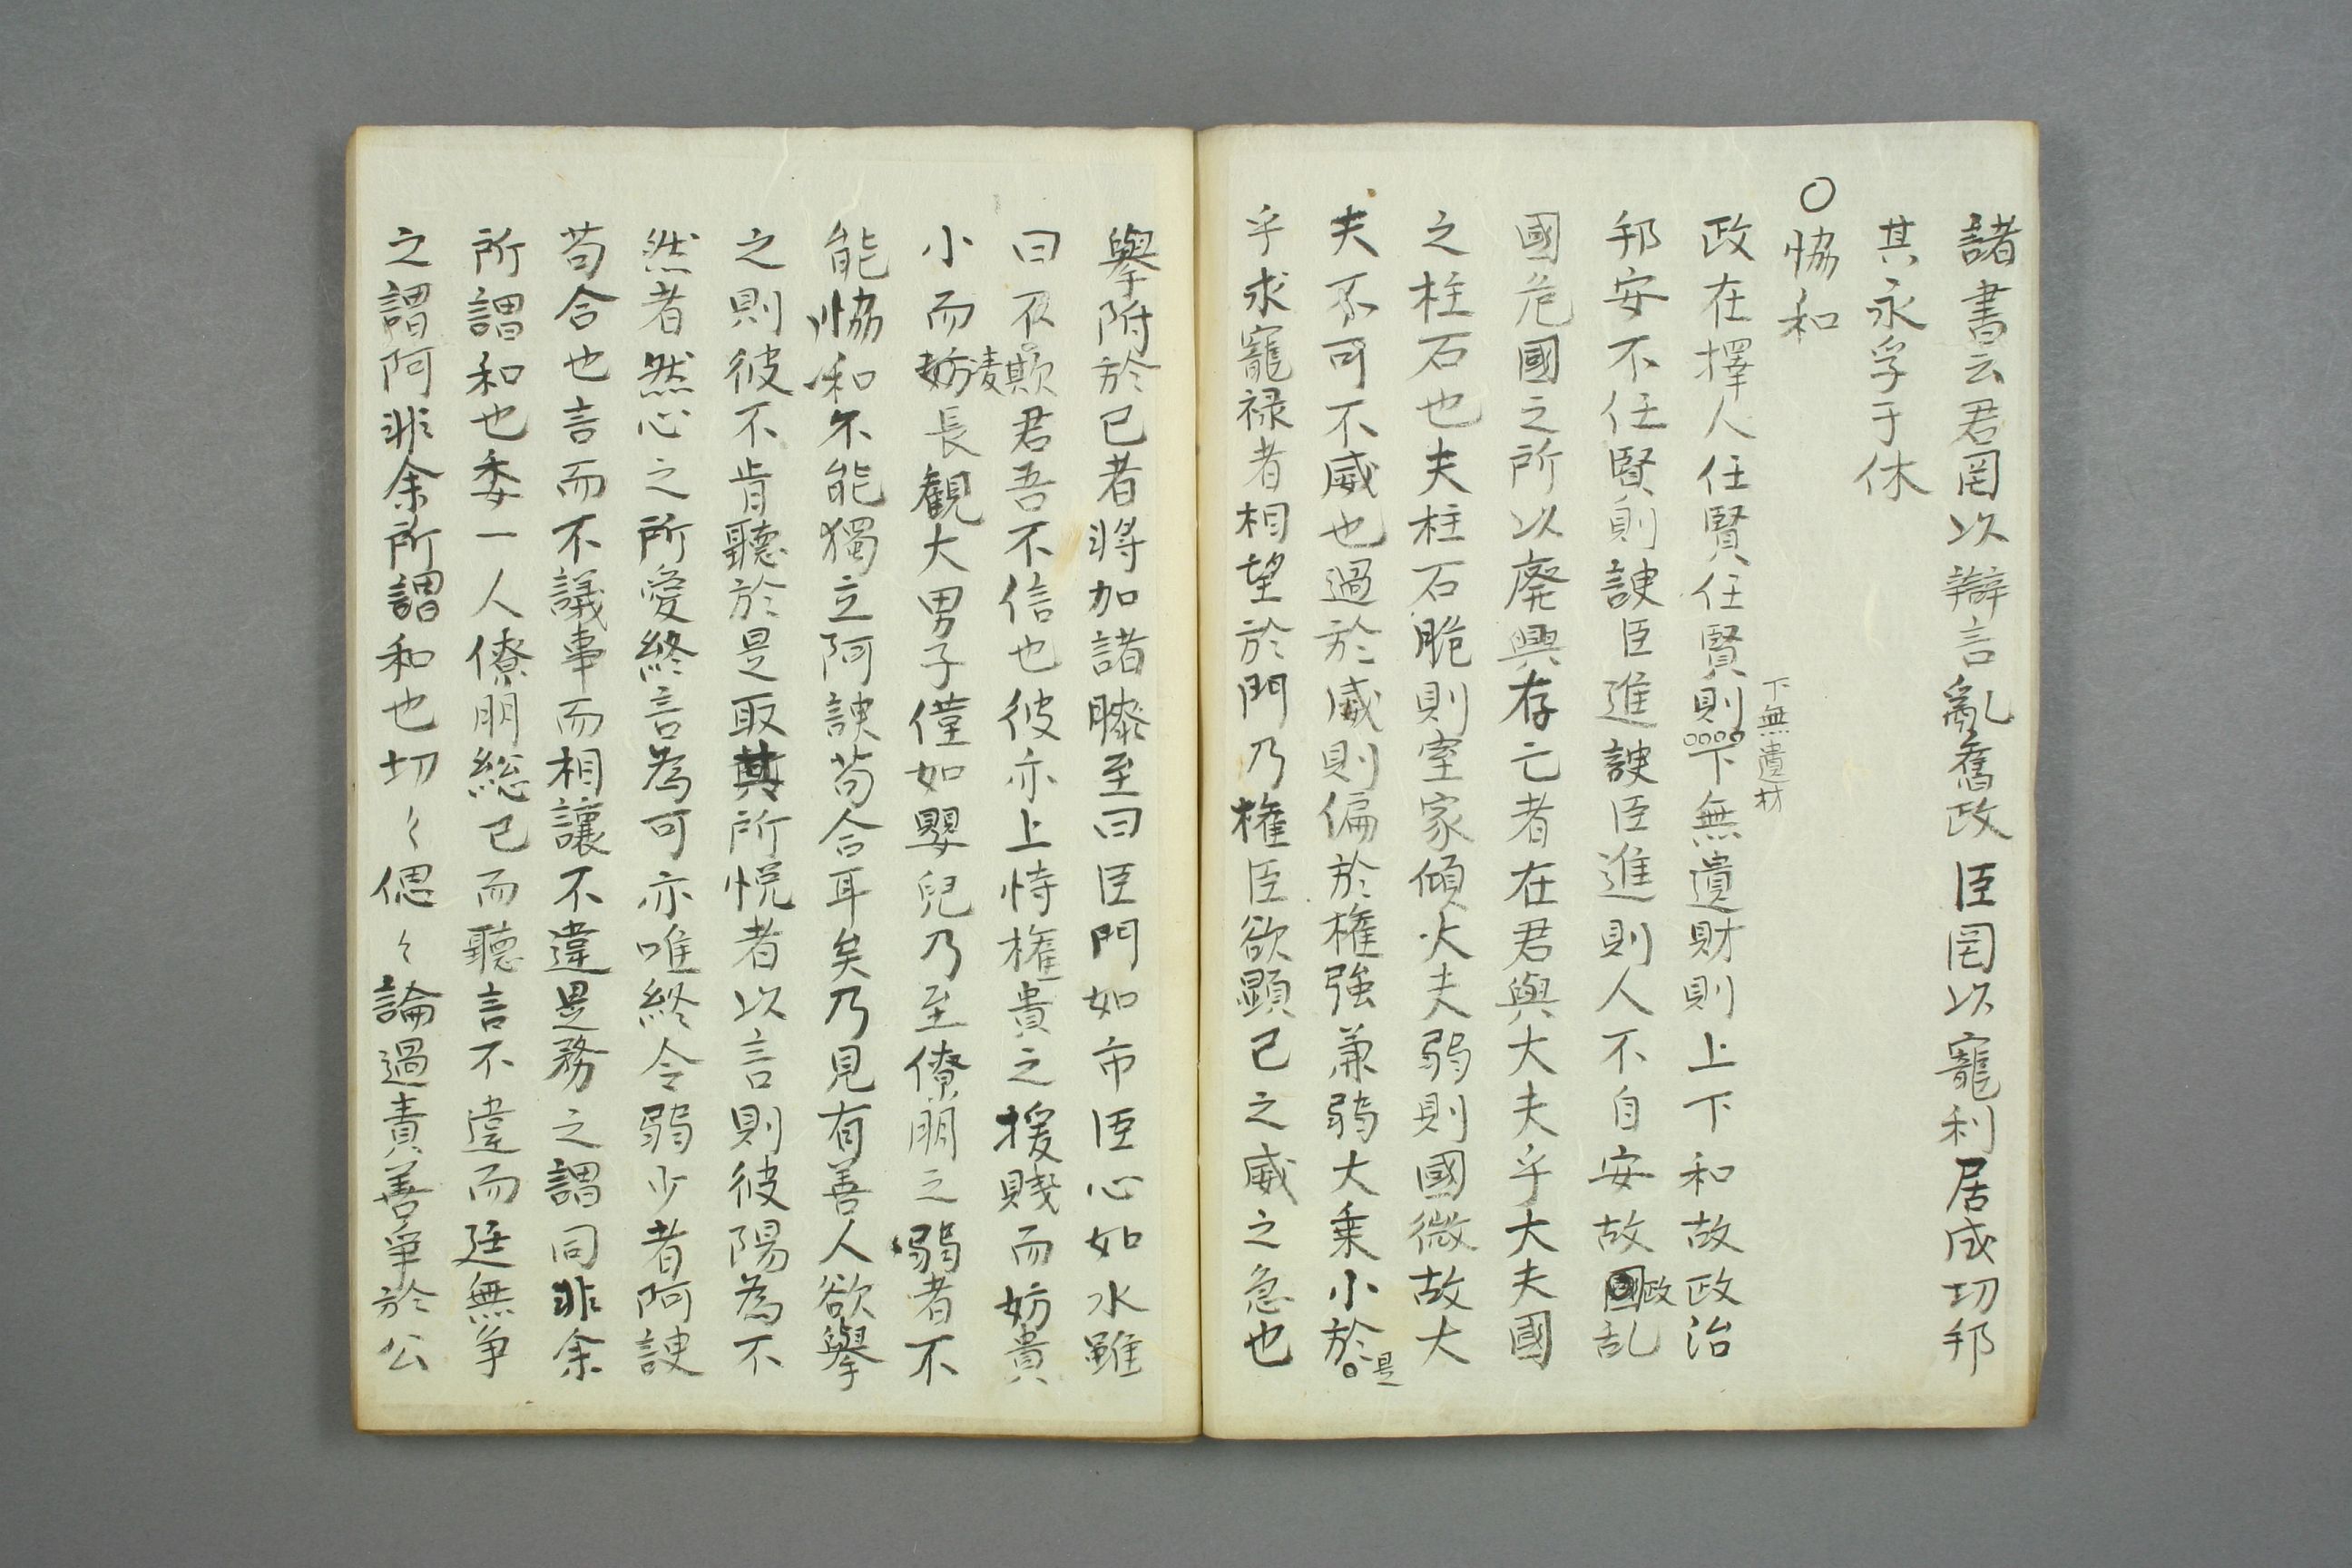 諸書云君罔以辯言亂舊政臣罔以寵利居成切邦
其永孚于休
〇恊和
政在擇人任賢任賢則下無遺財則上下和故政治
下無遺材
邦安不任賢則諛臣進諛臣進則人不自安故國乱
政
國危國之所以廃興存亡者在君與大夫乎大夫國
之柱石也夫柱石脆則室家傾大夫弱則國微故大
夫不可不威也過於威則偏於権強兼弱大乗小於
是
乎求寵禄者相望於門乃権臣欲顕己之威之急也
擧附於已者將加諸膝至曰臣門如市臣心如水雖
曰不欺君吾不信也彼亦上恃権貴之援賎而妨貴
小而妨長観大男子僅如嬰兒乃至僚朋之弱者不
凌
能恊和不能獨立阿諛苟合耳矣乃見有善人欲擧
之則彼不肯聽於是取其所悦者以言則彼陽為不
然者然心之所愛終言為可亦唯終令弱少者阿諛
苟合也言而不議事而相讓不違是務之謂同非余
所謂和也委一人僚朋総已而聽言不違而廷無争
之謂阿非余所謂和也切〻偲〻論過責善争於公